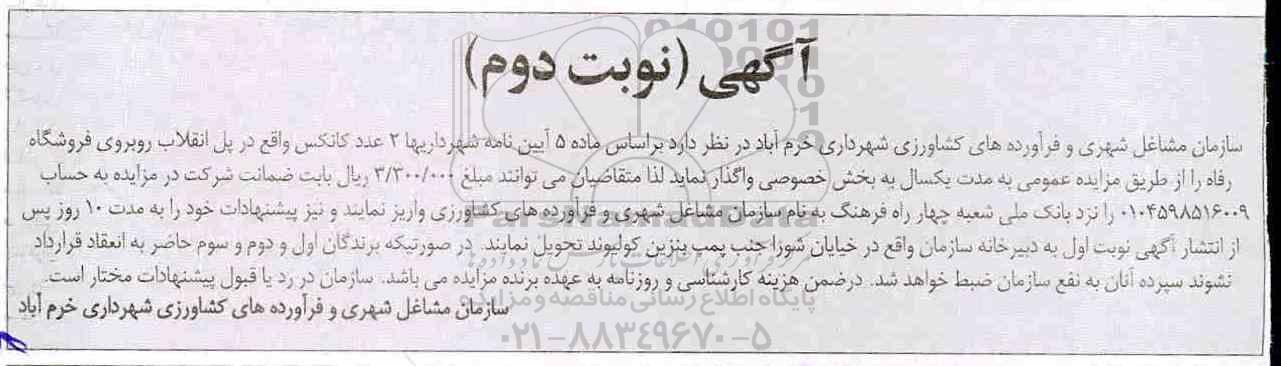 آگهی (نوبت دوم)
سازمان مشاغل شهری و فرآورده های کشاورزی شهرداری خرم آباد در نظر دارد براساس ماده ۵ آیین نامه شهرداریها ۲ عدد کانکس واقع در پل انقلاب روبروی فروشگاه
رفاه را از طریق مزایده عمومی به مدت یکسال به بخش خصوصی واگذار نماید لذا متقاضیان می توانند مبلغ ۳/۳۰۰/۰۰۰ ریال بابت ضمانت شرکت در مزایده به حساب
۰۱۰۴۵۹۸۵۱۶۰۰۹ را نزد بانک ملی شعبه چهار راه فرهنگ به نام سازمان مشاغل شهری و فرآورده های کشاورزی واریز نمایند و نیز پیشنهادات خود را به مدت ۱۰ روز پس
از انتشار آگهی نوبت اول به دبیرخانه سازمان واقع در خیابان شورا جنب پمپ بنزین کولیوند تحویل نمایند. در صورتیکه برندگان اول و دوم و سوم حاضر به انعقاد قرارداد
نشوند سپرده آنان به نفع سازمان ضبط خواهد شد. درضمن هزینه کارشناسی و روزنامه به عهده برنده مزایده می باشد. سازمان در رد یا قبول پیشنهادات مختار است.
سازمان مشاغل شهری و فرآورده های کشاورزی شهرداری خرم آباد
ParsNamadData
پایگاه اطلاع رسانی مناقصه و مزایده
۰۲۱-۸۸۳۴۹۶۷۰-۵